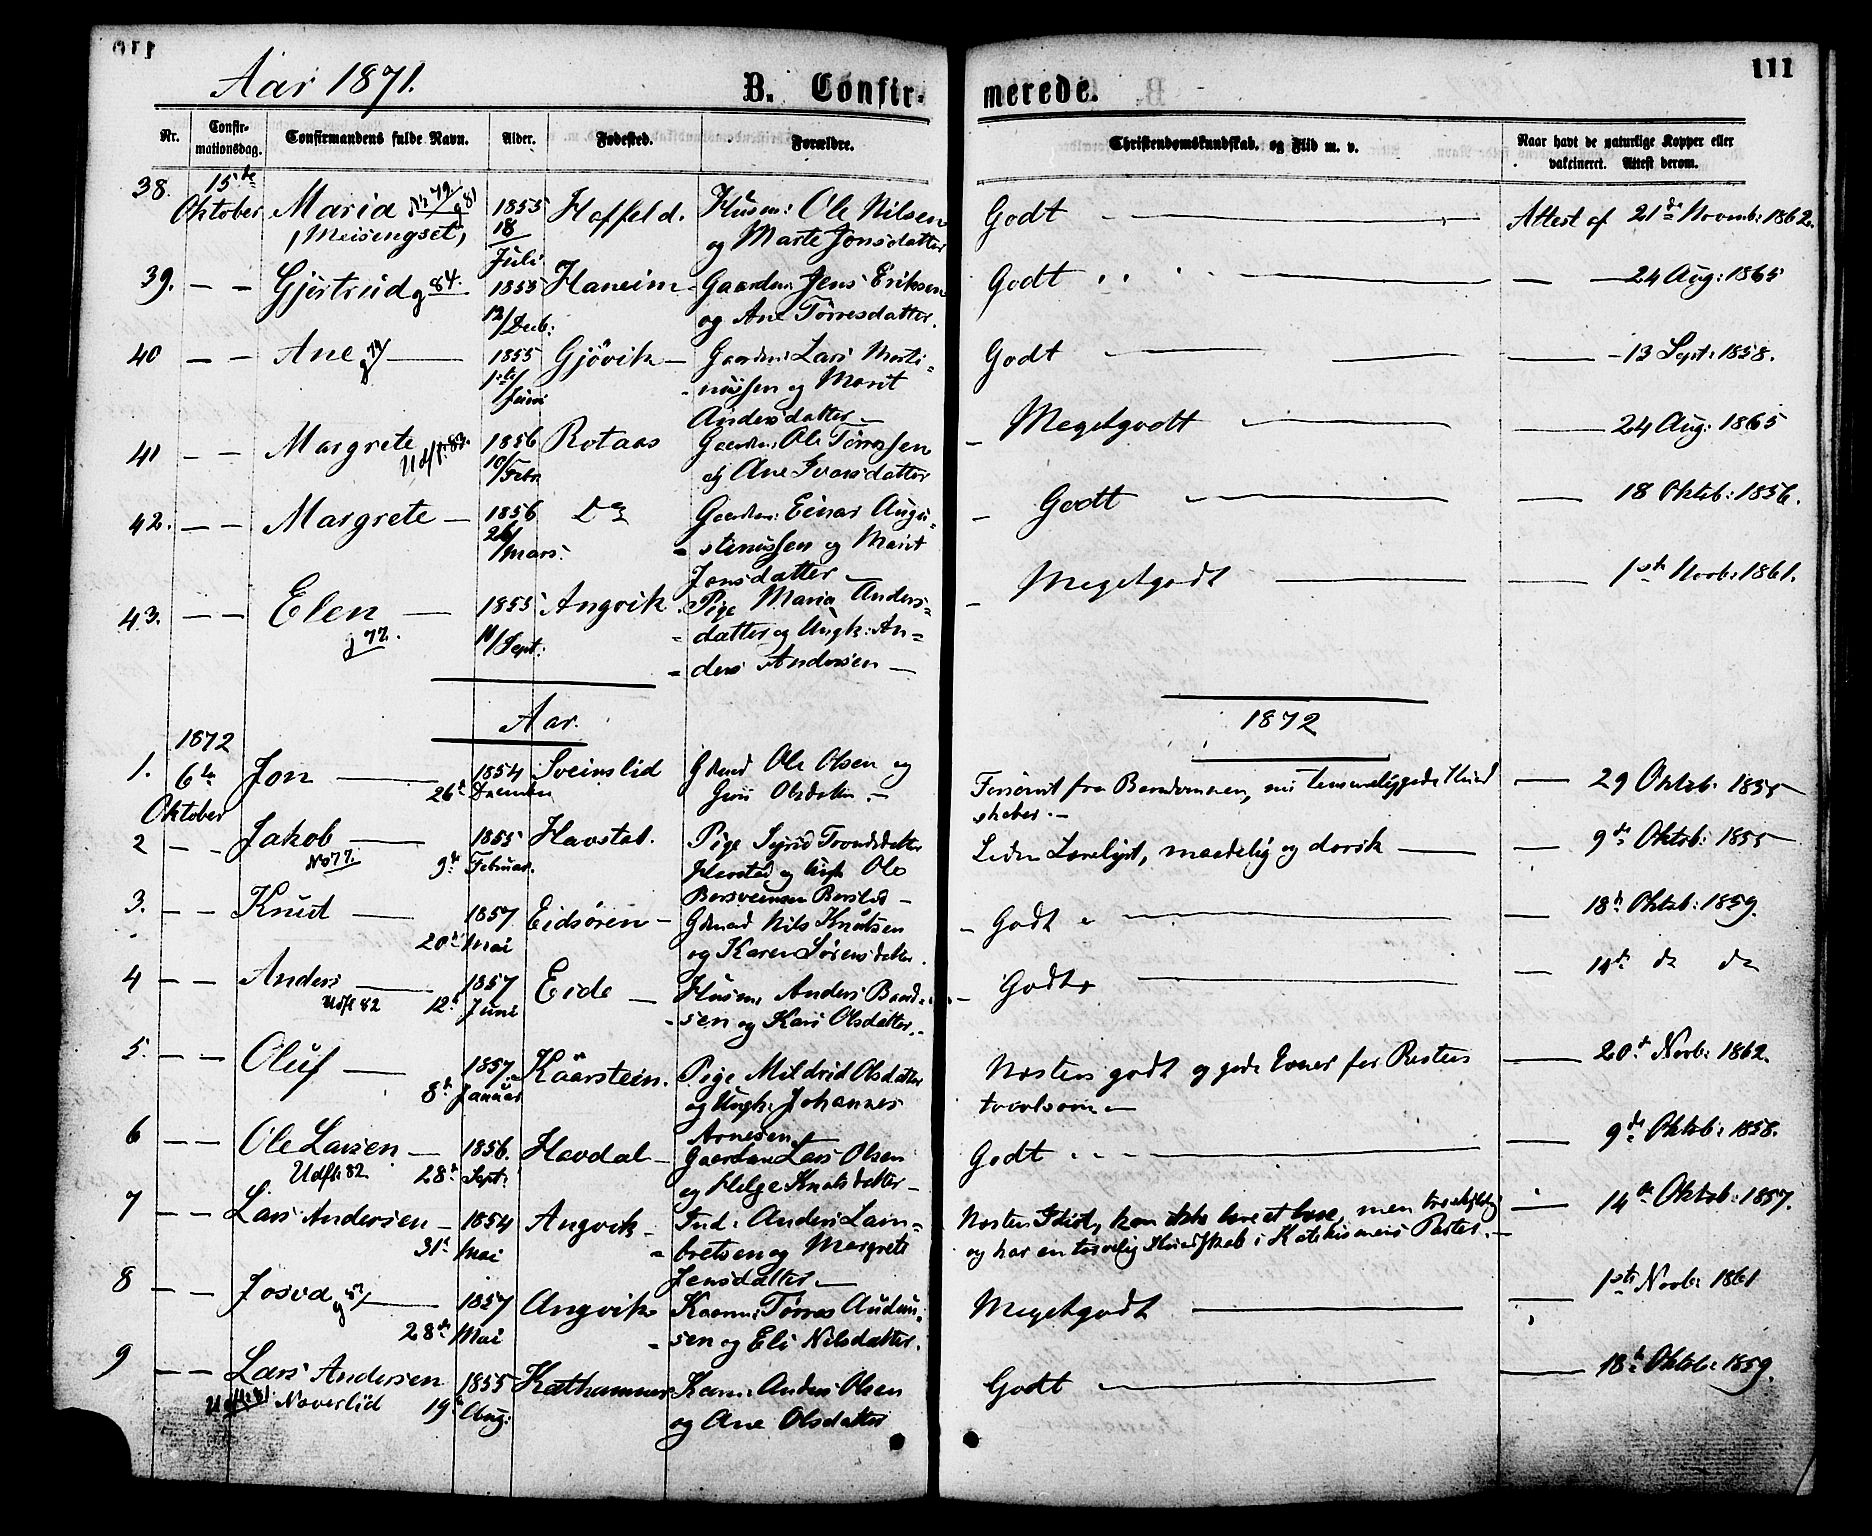 111
Aar 1871.
B. Confirmerede.
Nr. Confirmationsdag. Confirmandens fulde Navn. Alder. Fødested. Forældre. Christendomskundskab, og Flid m. v. Naar havt de naturlige Kopper eller vaksineret. Attest derom.
38. 15de Oktober Maria (Meisengset) 1855 18/Juli Hoffeld. Husm: Ole Nilsen og Marte Jonsdatter Godt — Attest af 21de Novemb: 1862.
39. — — Gjertrud g 84. 1855 12/Decb: Haneim Gaardm: Jens Eriksen og Ane Tørresdatter. Godt — — 24 Aug: 1865
40 — — Ane — 1855 1ste/Juni Gjøvik — Gaardm: Lars Martinussen og Marit Andersdatter — Godt — — 13 Sept: 1858.
41 — — Margrete Udfl: 83. 1856 10/Febr. Rotaas Gaardm: Ole Tørressen og Ane Ivarsdatter Megetgodt — — 24 Aug: 1865
42. — — Margrete — 1856 26/Mars: Do Gaardm: Einar Augustinussen og Marit Jonsdatter — Godt — — 18 Oktob: 1856.
43. — — Elen — g 77. 1855 11/Sept: Angvik Pige Maria Andersdatter og Ungk: Anders Andersen — Megetgodt — — 1ste Novb: 1861.
Aar. 1872
1. 1872 6te Oktober Jon — 1854 26de December Sveinslid Gdmd Ole Olsen og Guri Olsdatter. — Forsømt fra Barndommen, nu temmeliggode Kundskaber. — — 29 Oktob. 1855
2 — — Jakob — No 77. 1855 9de Februar. Havstad. Pige Sigrid Trondsdatter Havstad og Ungk Ole — Liden Lærelyst, maadelig og dorsk — — 9de Oktob: 1855
3. — — Knud — 1857 20de Mai Eidsøren — Gdmd Nils Knutsen og Karen Sørensdatter. Godt — — 18de Oktob: 1859.
4 — — Anders — Udfl 82 1857 12te Juni Eide — Husm: Anders Baardsen og Kari Olsdatter. — Godt — — 14de do do
5. — — Oluf — 1857. 8de Januar Kaarstein. Pige Mildrid Olsdatter og Ungk: Johannes Arnesen — Næsten godt og gode Evner for Resten tvorlsom — — 20de Novb: 1862.
6 — — Ole Larsen — Udfl: 82 1856. 28de Sept: Havdal — Gaardm Lars Olsen og Helge Knutsdatter — Godt — — 9de Oktob: 1858.
7 — — Lars Andersen — 1854 31te Mai Angvik — Ind: Anders Lambretsen og Margrete Jensdatter — Næsten Idiot, kan ikke læse, men og har en Kundskab i Katekismens Parter. — — 14de Oktob: 1857.
8 — — Josva — 1857 28de Mai Angvik Kaarm: Tørres Audunsen og Eli Nilsdatter. Megetgodt — — 1ste Novb: 1861
9 — — Lars Andersen Naverlid 1855 19de Aug: Kathammer Kaarm: Anders Olsen og Ane Olsdatter Godt — — 18de Oktob: 1859.